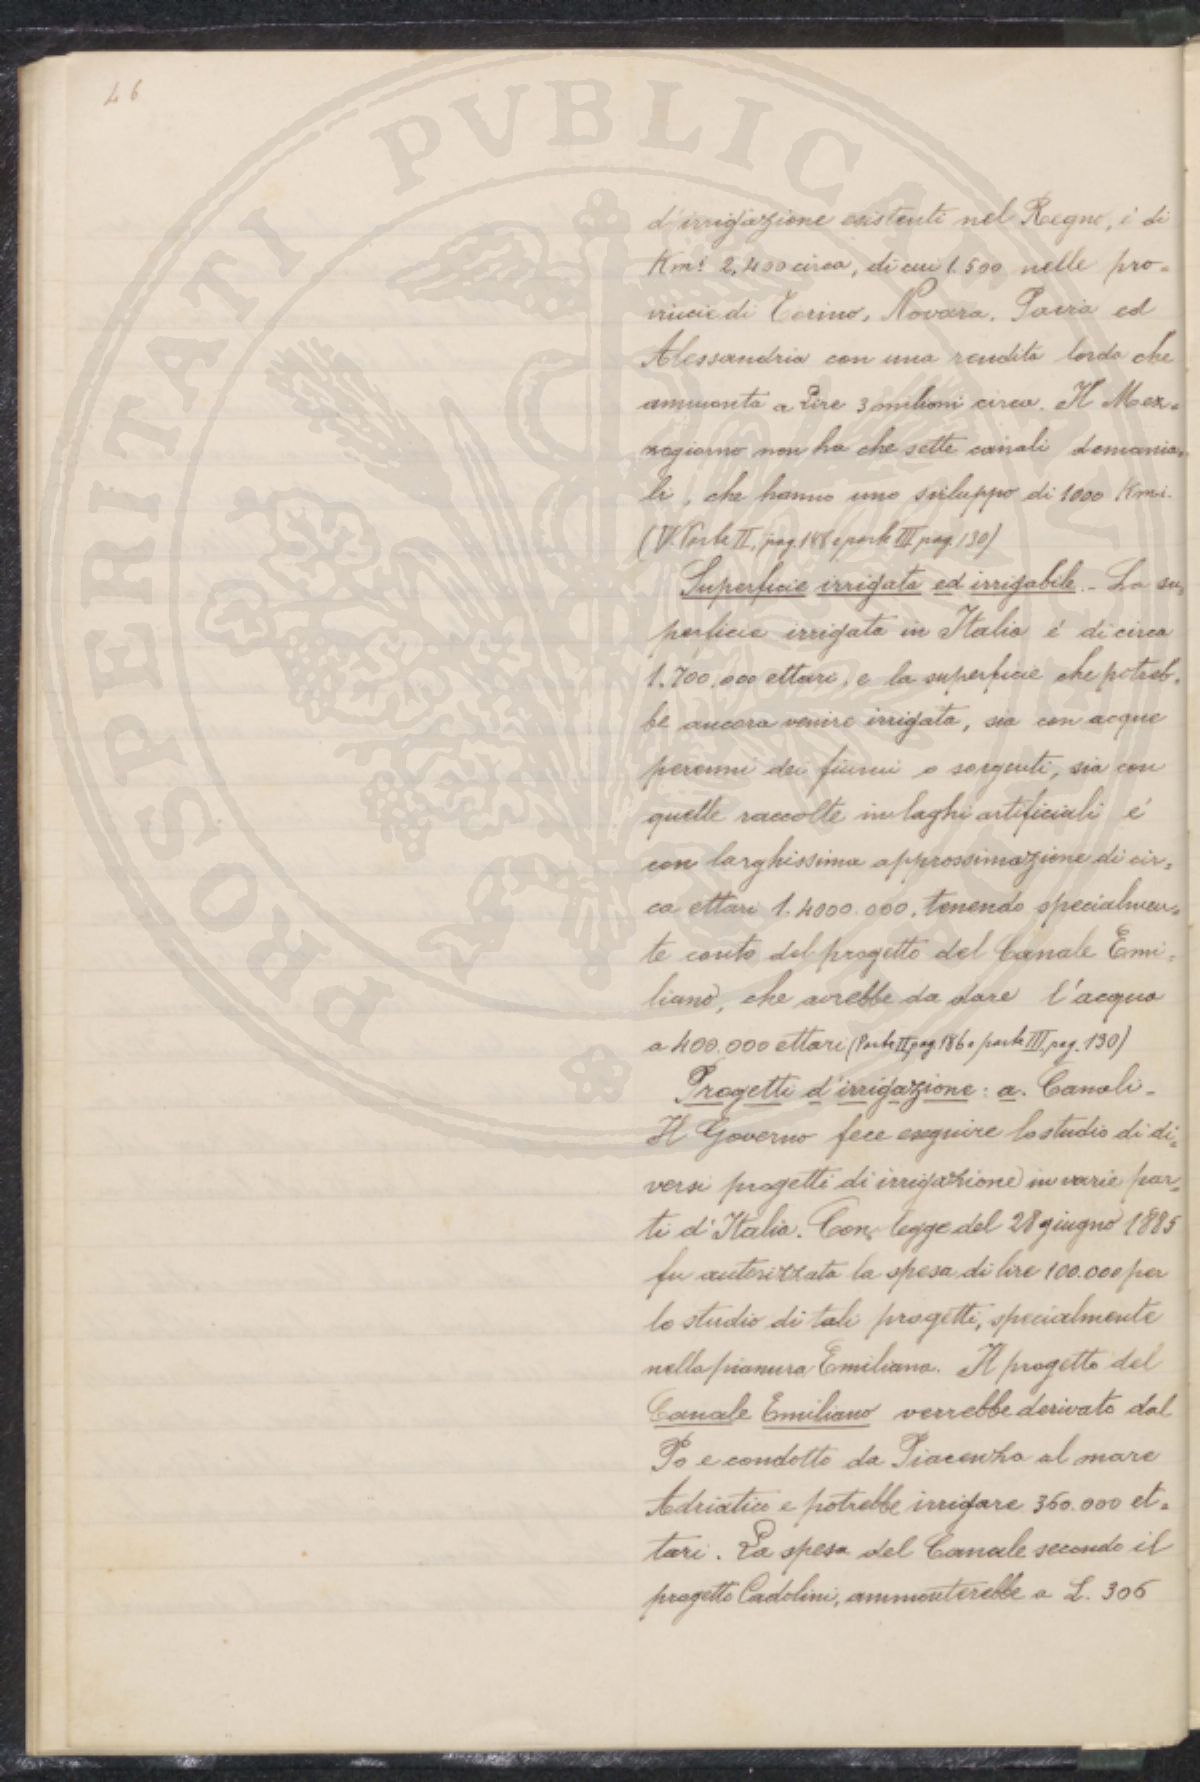 46
PROSPERITATI PVBLICAE
d'irrigazione esistenti nel Regno, è di
Kmi 2,400 circa, di cui 1.500 nelle pro=
vincie di Torino, Novara, Pavia ed
Alessandria con una rendita lorda che
ammonta a Lire 3 milioni circa. Il Mez=
zogiorno non ha che sette canali demania=
li, che hanno uno sviluppo di 1000 Kmi.
(V. Parte II, pag. 148 e parte III pag. 130)
Superficie irrigata ed irrigabile. - La su=
perficie irrigata in Italia è di circa
1.700.000 ettari, e la superficie che potreb=
be ancora venire irrigata, sia con acque
perenni dei fiumi o sorgenti, sia con
quelle raccolte in laghi artificiali è
con larghissima approssimazione di cir=
ca ettari 1.4000.000, tenendo specialmen=
te conto del progetto del Canale Emi=
liano, che avrebbe da dare l'acqua
a 400.000 ettari (Parte II pag. 186 e parte III, pag. 130)
Progetti d'irrigazione: a. Canali -
Il Governo fece eseguire lo studio di di=
versi progetti di irrigazione in varie par=
ti d'Italia. Con legge del 28 giugno 1885
fu autorizzata la spesa di lire 100.000 per
lo studio di tali progetti, specialmente
nella pianura Emiliana. Il progetto del
Canale Emiliano verrebbe derivato dal
Po e condotto da Piacenza al mare
Adriatico e potrebbe irrigare 360.000 et=
tari. La spesa del Canale secondo il
progetto Cadolini, ammonterebbe a L. 306